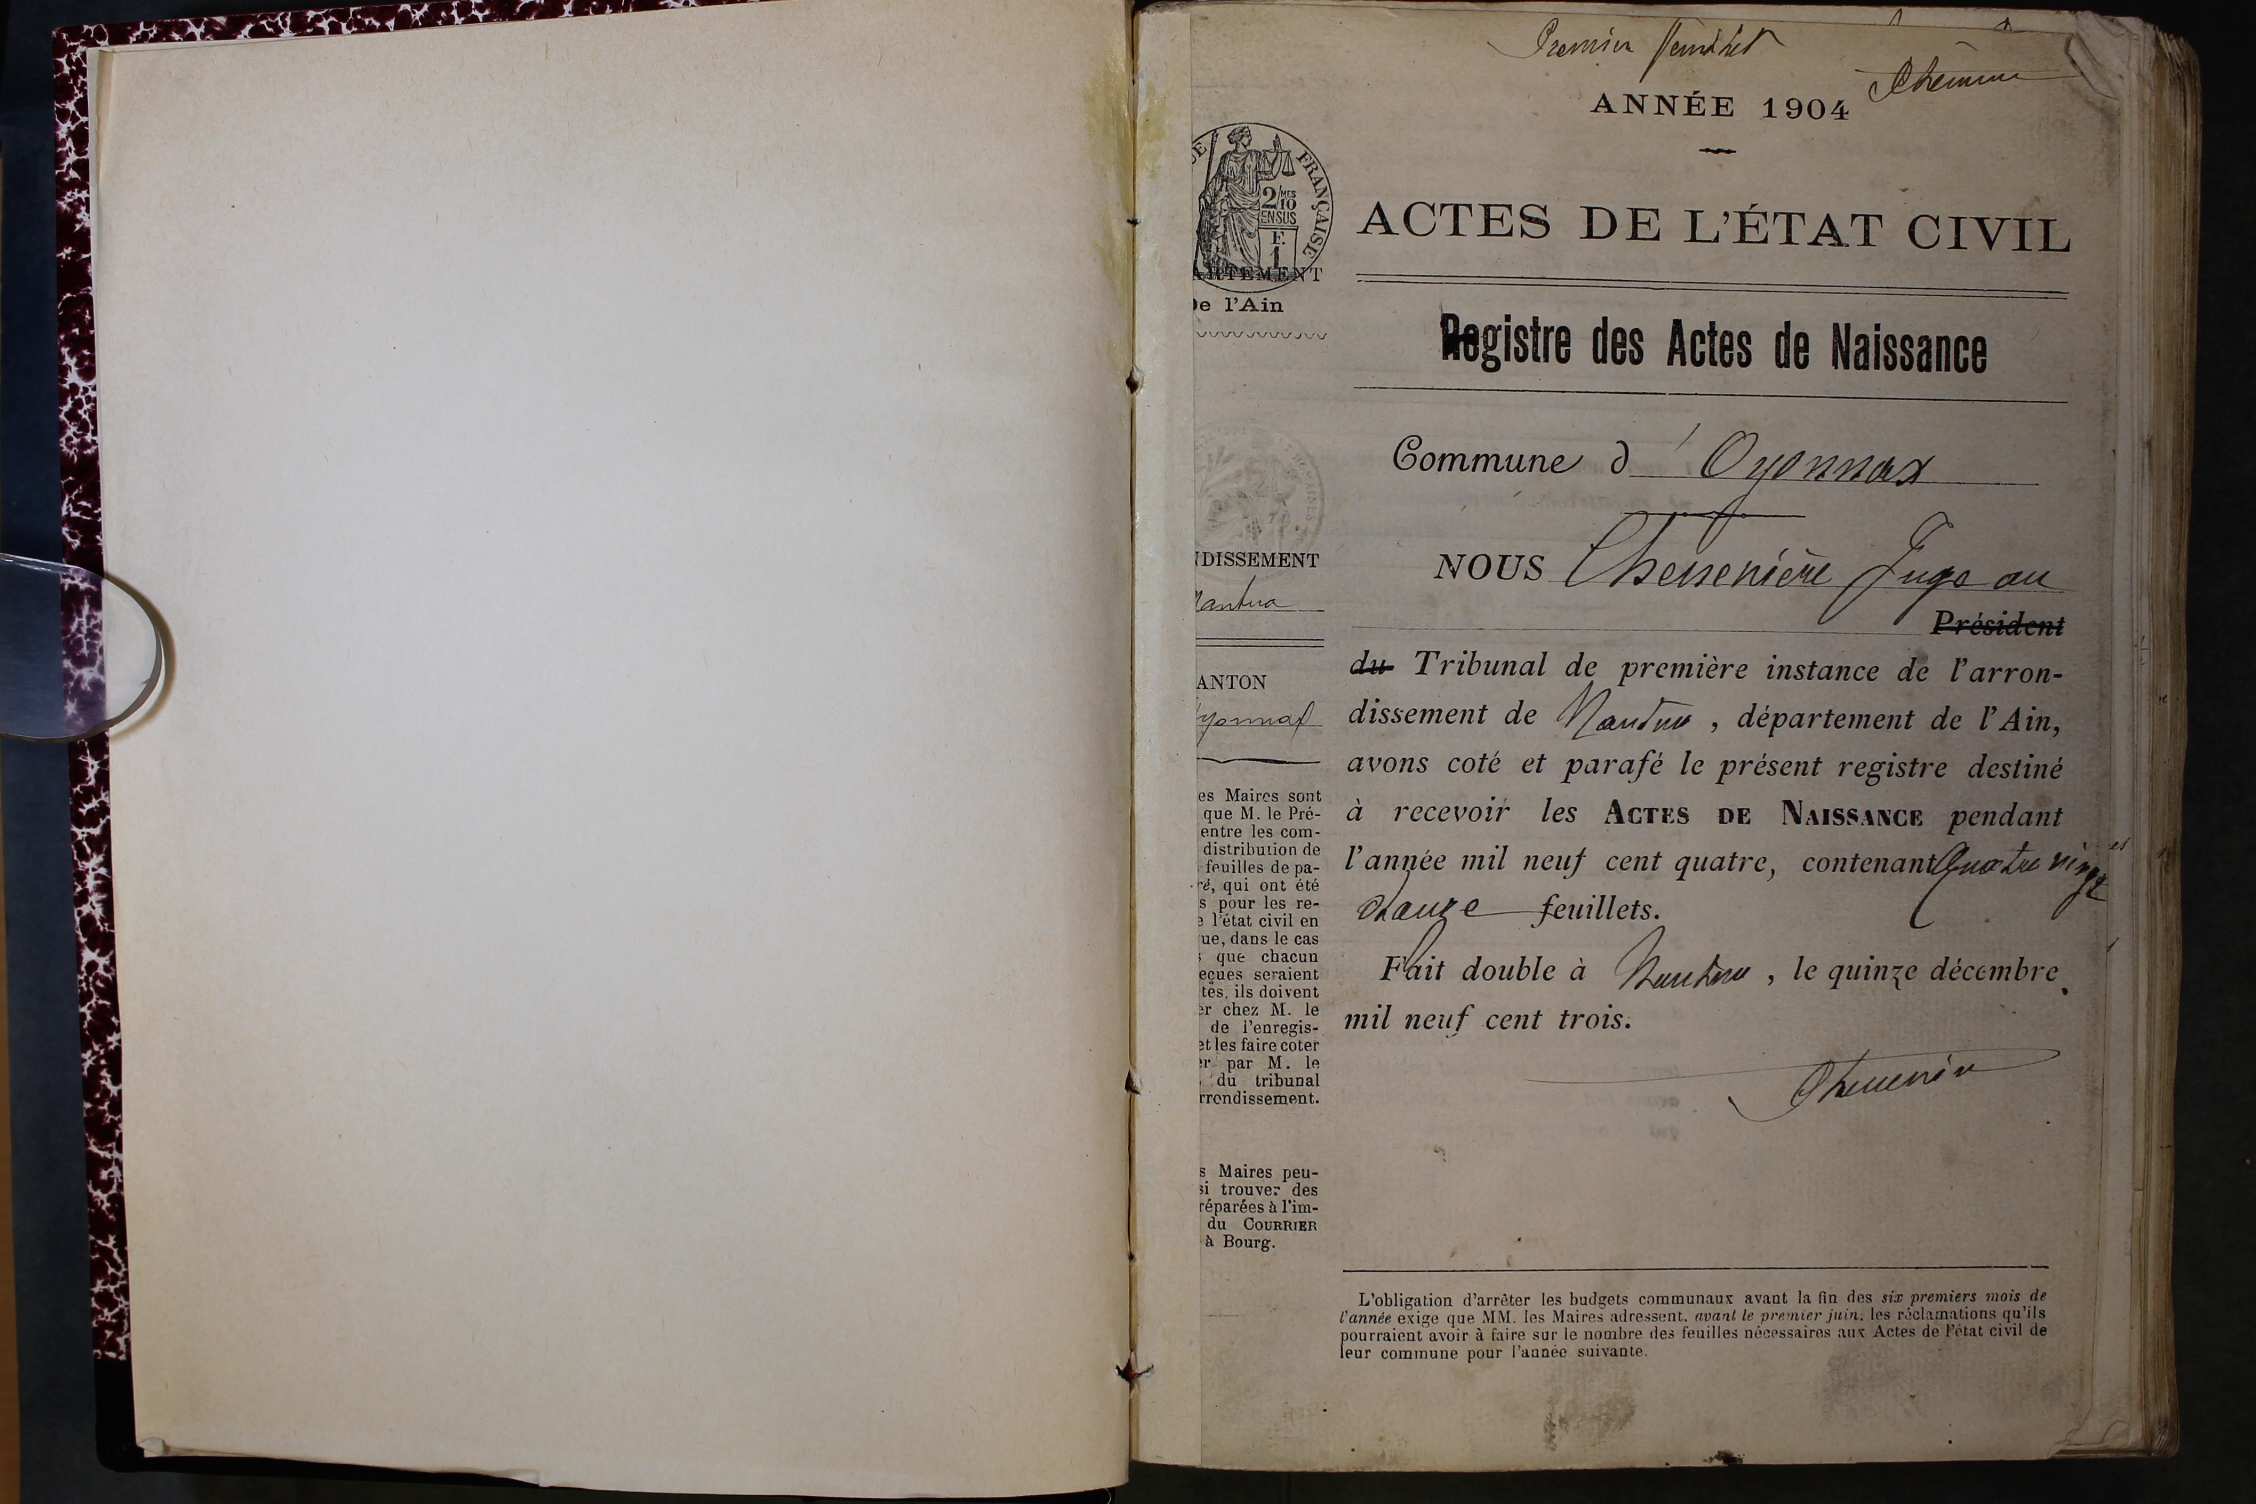 Premier feuillet
ANNÉE 1904
UE FRANÇAISE
2/10 MES
EN SUS
F.
1
ARTEMENT
De l'Ain
NDISSEMENT
Nantua
ANTON
Oyonnax
es Maires sont
que M. le Pré-
entre les com-
distribution de
feuilles de pa-
ré, qui ont été
s pour les re-
e l'état civil en
ue, dans le cas
que chacun
eçues seraient
tés, ils doivent
er chez M. le
de l'enregis-
et les faire coter
er par M. le
du tribunal
rrondissement.
s Maires peu-
si trouver des
réparées à l'im-
du COURRIER
à Bourg.
ACTES DE L'ÉTAT CIVIL
Registre des Actes de Naissance
Commune d'Oyonnax
NOUS Juge au
Président
du Tribunal de première instance de l'arron-
dissement de Nantua, département de l'Ain,
avons coté et parafé le présent registre destiné
à recevoir les ACTES DE NAISSANCE pendant
l'année mil neuf cent quatre, contenant Quatre vingt
feuillets.
Fait double à Nantua, le quinze décembre
mil neuf cent trois.
L'obligation d'arrêter les budgets communaux avant la fin des six premiers mois de
l'année exige que MM. les Maires adressent, avant le premier juin, les réclamations qu'ils
pourraient avoir à faire sur le nombre des feuilles nécessaires aux Actes de l'état civil de
leur commune pour l'année suivante.